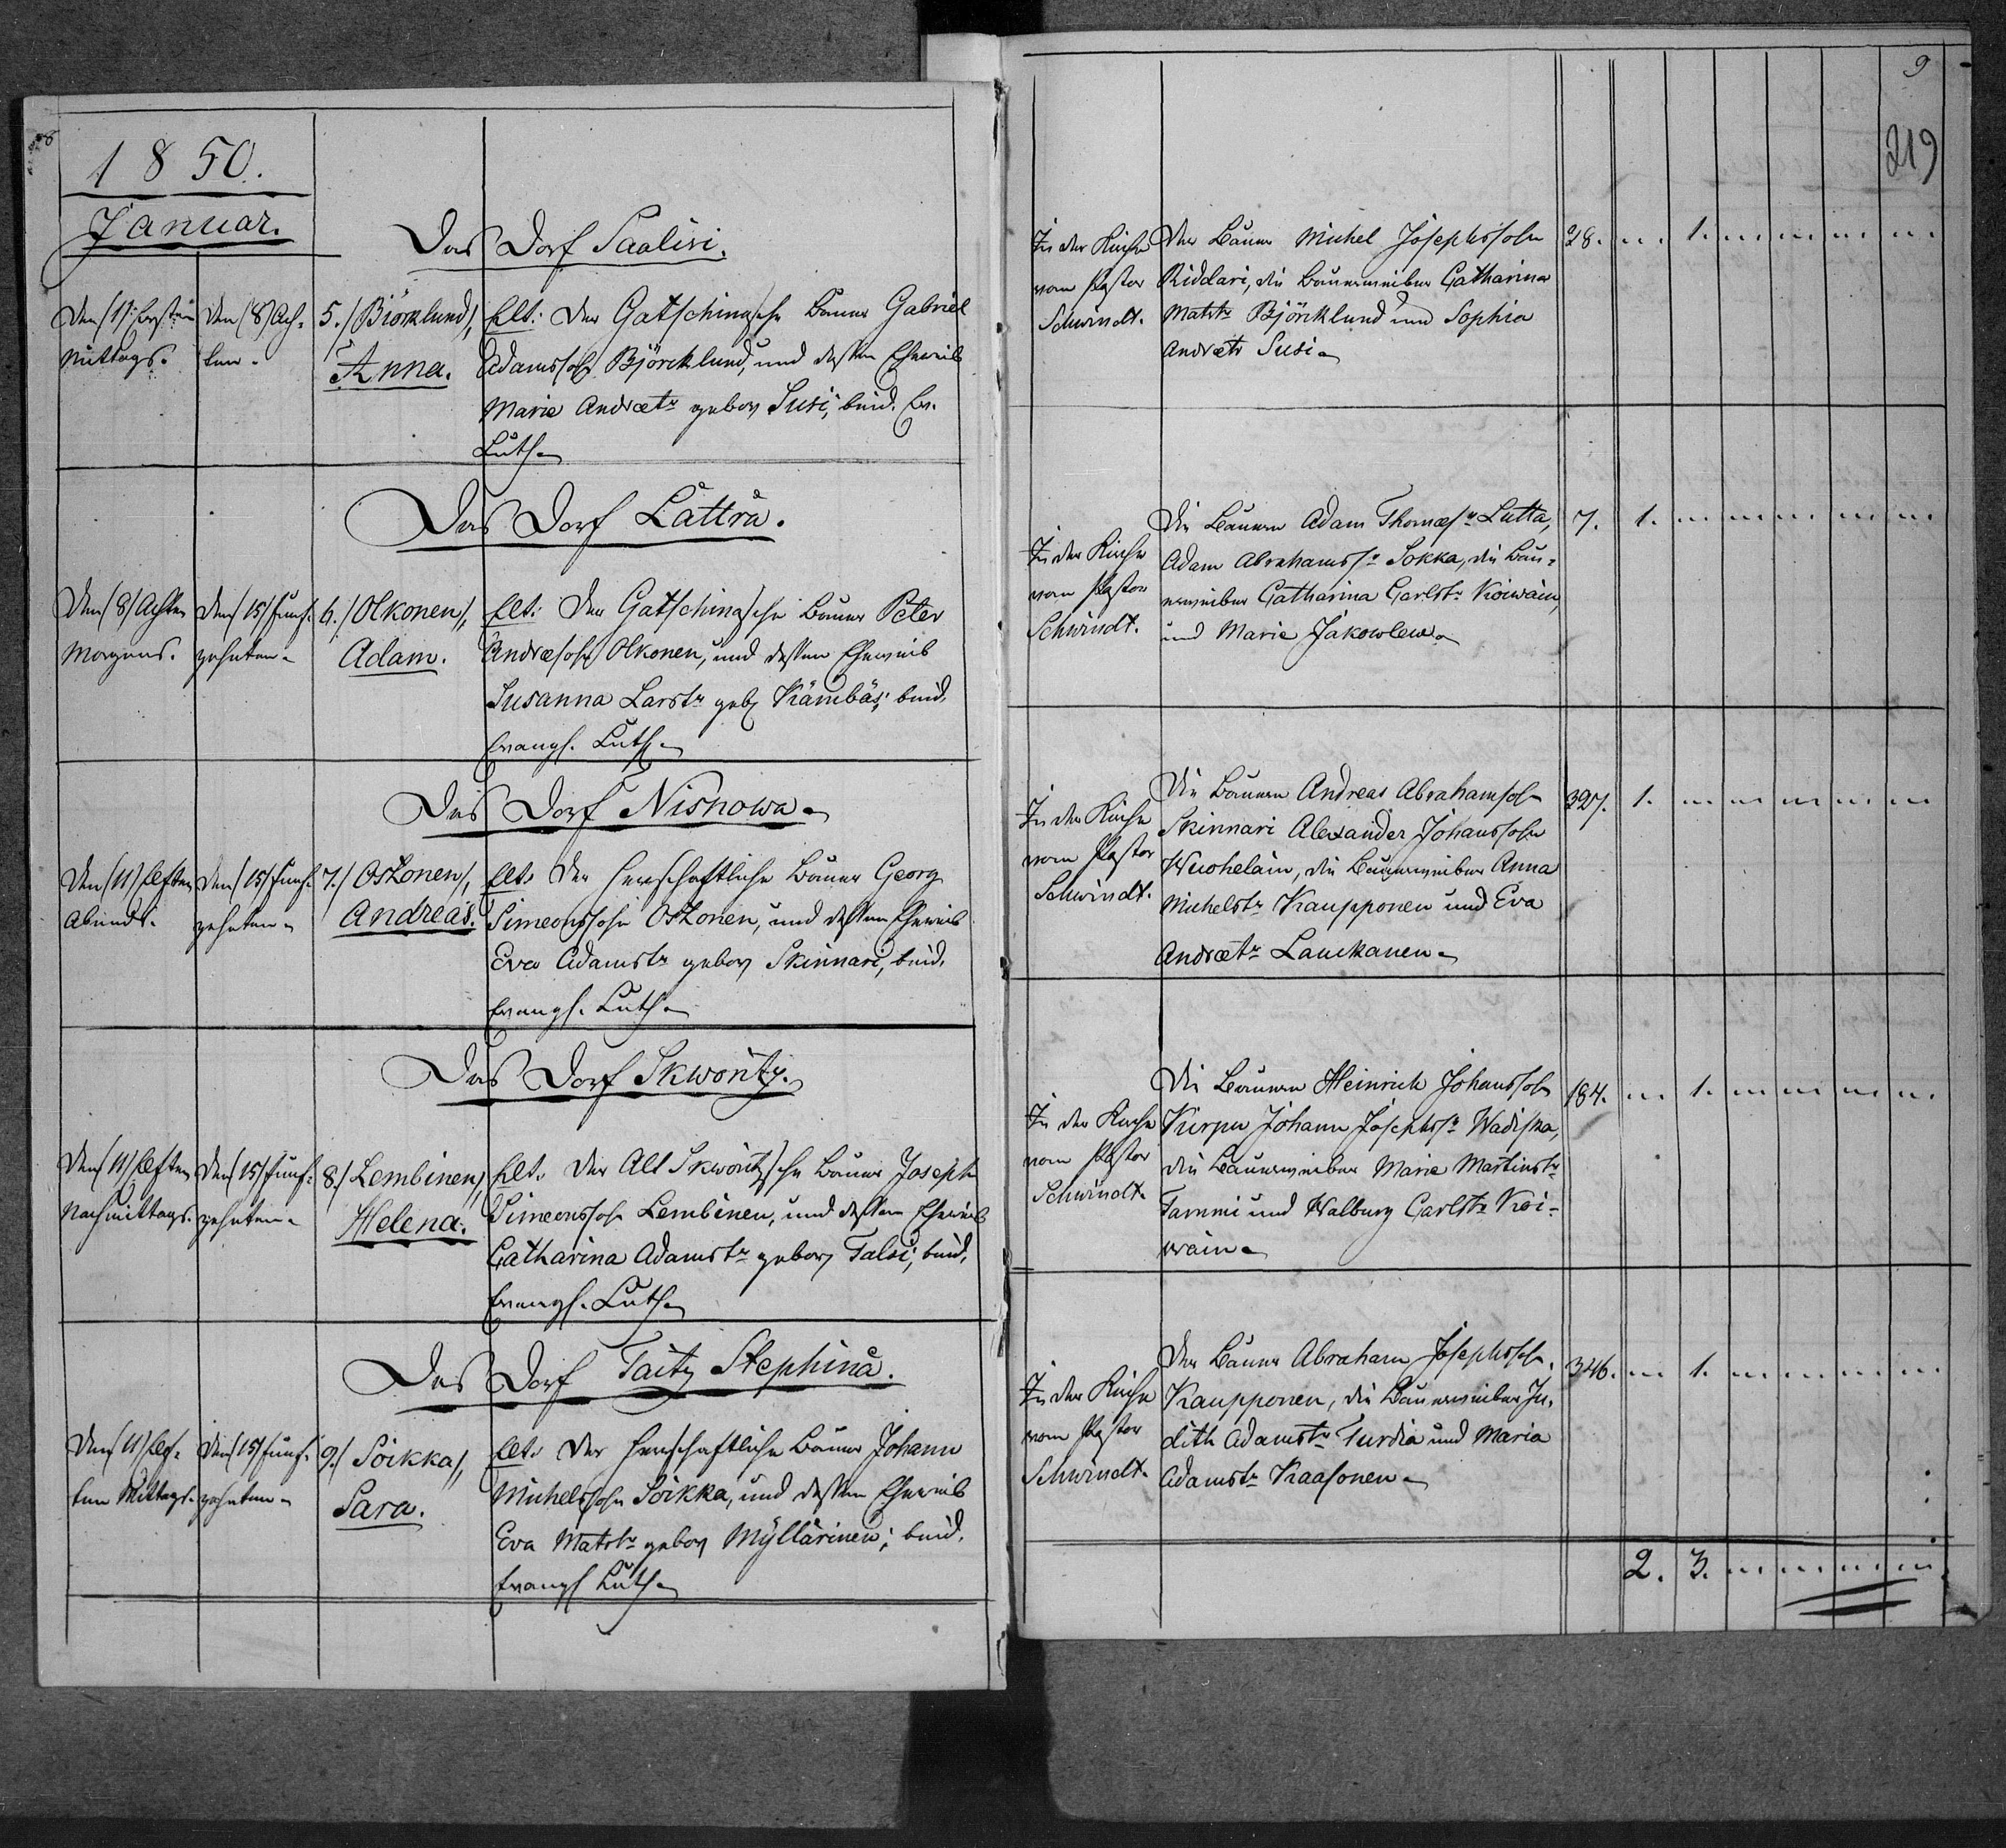 8
1850.
Januar.
Das Dorf Saalisi.
Den (1) Ersten
Mittags.
Den (8) Ach-
ten.
5./ Björklund,
Anna.
Elt: Der Gatschinasche Bauer Gabriel
Adamssohn Björcklund, und dessen Eheweib
Marie Andraetr gebor Susi; beid. Ev.
Luth.
Das Dorf Lattra.
Den (8) Achten
Morgens.
Den (15) Funf-
zehnten.
6./ Olkonen,
Adam.
Elt: Der Gatschinasche Bauer Peter
Andraesohn Olkonen, und dessen Eheweib
Susanna Larstr geb Kämbäs; beid.
Evangh. Luth.
Das Dorf Nisnowa.
Den (11) Elften
Abends.
Den (15) Funf-
zehnten.
7./ Oskonen,
Andreas.
Elt: Der Herrschaftliche Bauer Georg
Simeonssohn Oskonen, und dessen Eheweib
Eva Adamstr gebor Skinnari, beid.
Evangh. Luth.
Das Dorf Skworitz.
Den (11) Elften
Nachmittags.
Den (15) Funf-
zehnten.
8./ Lembinen,
Helena.
Elt: Der Alt Skworitzsche Bauer Joseph
Simeonssohn Lembinen, und dessen Eheweib
Catharina Adamstr gebor Talsi; beid.
Evangh. Luth.
Das Dorf Taitz Stephina.
Den (11) Elf-
ten Mittags.
Den (15) Funf-
zehnten.
9./ Soikka,
Sara.
Elt: Der Herrschaftliche Bauer Johann
Michelssohn Soikka, und dessen Eheweib
Eva Matstr gebor Myllärinen; beid.
Evangh Luth.
9
219
In der Kirche
vom Pastor
Schwindt.
Der Bauer Michel Josephssohn
Riddari, die Bauerweiber Catharina
Matstr Björcklund und Sophia
Andraetr Susi.
28. 1.
In der Kirche
vom Pastor
Schwindt.
Die Bauern Adam Thomaesn Lutta,
Adam Abrahamssn Sokka, die Bau-
erweiber Catharina Carlstr Koiwain,
und Marie Jakowlew.
7. 1.
In der Kirche
vom Pastor
Schwindt.
Die Bauern Andreas Abrahamsohn
Skinnari Alexander Johanssohn
Wuohelain, die Bauerweiber Anna
Michelstr Kaupponen und Eva
Andraetr Lauckanen.
327. 1.
In der Kirche
vom Pastor
Schwindt.
Die Bauern Heinrich Johanssohn
Kurpu Johann Josephssn Wadiska,
die Bauerweiber Marie Martinstr
Tammi und Walburg Carlstr Koi-
wain.
184. 1.
In der Kirche
vom Pastor
Schwindt.
Der Bauer Abraham Josephssohn
Kaupponen, die Bauerweiber Ju-
dith Adamstr Turdia und Maria
Adamstr Kaasonen.
346. 1.
2. 3.